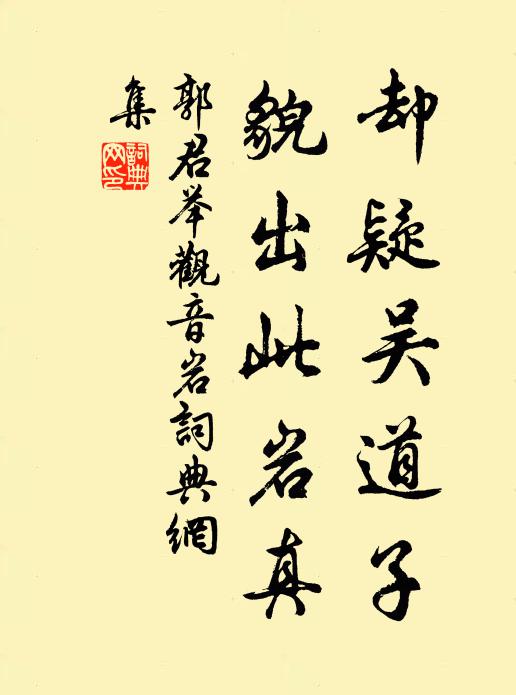 却疑吴道子
貌出此岩真
郭君举觀音岩詞典網
集
詞典
网印